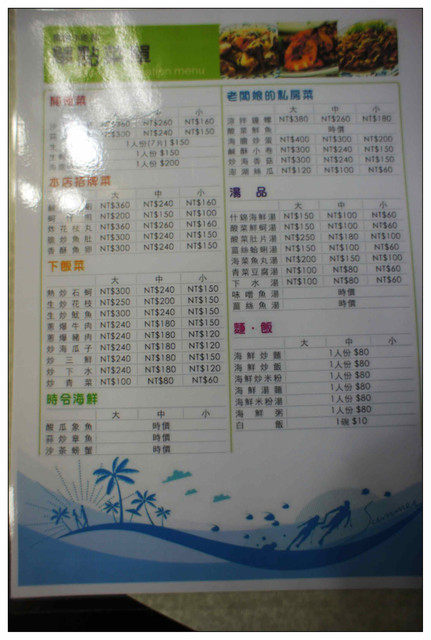 單點菜單
menu
開胃菜
大 中 小
NT$360 NT$260 NT$160
NT$300 NT$240 NT$150
1人份(7片) $150
1人份 $150
1人份 $200
本店招牌菜
大 中 小
NT$360 NT$240 NT$160
NT$200 NT$150 NT$100
炸花枝丸 NT$360 NT$240 NT$160
脆炒魚肚 NT$300 NT$240 NT$150
香酥魚卵 NT$300 NT$240 NT$150
下飯菜
大 中 小
熱炒石蚵 NT$300 NT$240 NT$150
生炒花枝 NT$250 NT$200 NT$150
生炒魷魚 NT$300 NT$240 NT$150
蔥爆牛肉 NT$240 NT$180 NT$150
蔥爆豬肉 NT$240 NT$180 NT$120
炒海瓜子 NT$240 NT$180 NT$120
炒三鮮 NT$240 NT$180 NT$150
炒下水 NT$240 NT$180 NT$120
炒青菜 NT$100 NT$80 NT$60
時令海鮮
大 中 小
醬瓜象魚 時價
蒜炒章魚 時價
沙茶螃蟹 時價
老闆娘的私房菜
大 中 小
涼拌 NT$380 NT$260 NT$180
酸菜鮮魚 時價
海膽炒蛋 NT$400 NT$300 NT$200
鹹酥小卷 NT$300 NT$240 NT$150
炒海香菇 NT$300 NT$240 NT$150
澎湖絲瓜 NT$120 NT$100 NT$60
湯 品
大 中 小
什錦海鮮湯 NT$150 NT$100 NT$60
酸菜鮮蚵湯 NT$150 NT$100 NT$60
酸菜肚片湯 NT$250 NT$180 NT$100
薑絲蛤蜊湯 NT$150 NT$100 NT$60
海菜魚丸湯 NT$200 NT$150 NT$100
青菜豆腐湯 NT$100 NT$80 NT$60
下水湯 NT$100 NT$80 NT$60
味噌魚湯 時價
薑絲魚湯 時價
麵・飯
大 中 小
海鮮炒麵 1人份 $80
海鮮炒飯 1人份 $80
海鮮炒米粉 1人份 $80
海鮮湯麵 1人份 $80
海鮮米粉湯 1人份 $80
海鮮粥 1人份 $80
白飯 1碗 $10
Summer